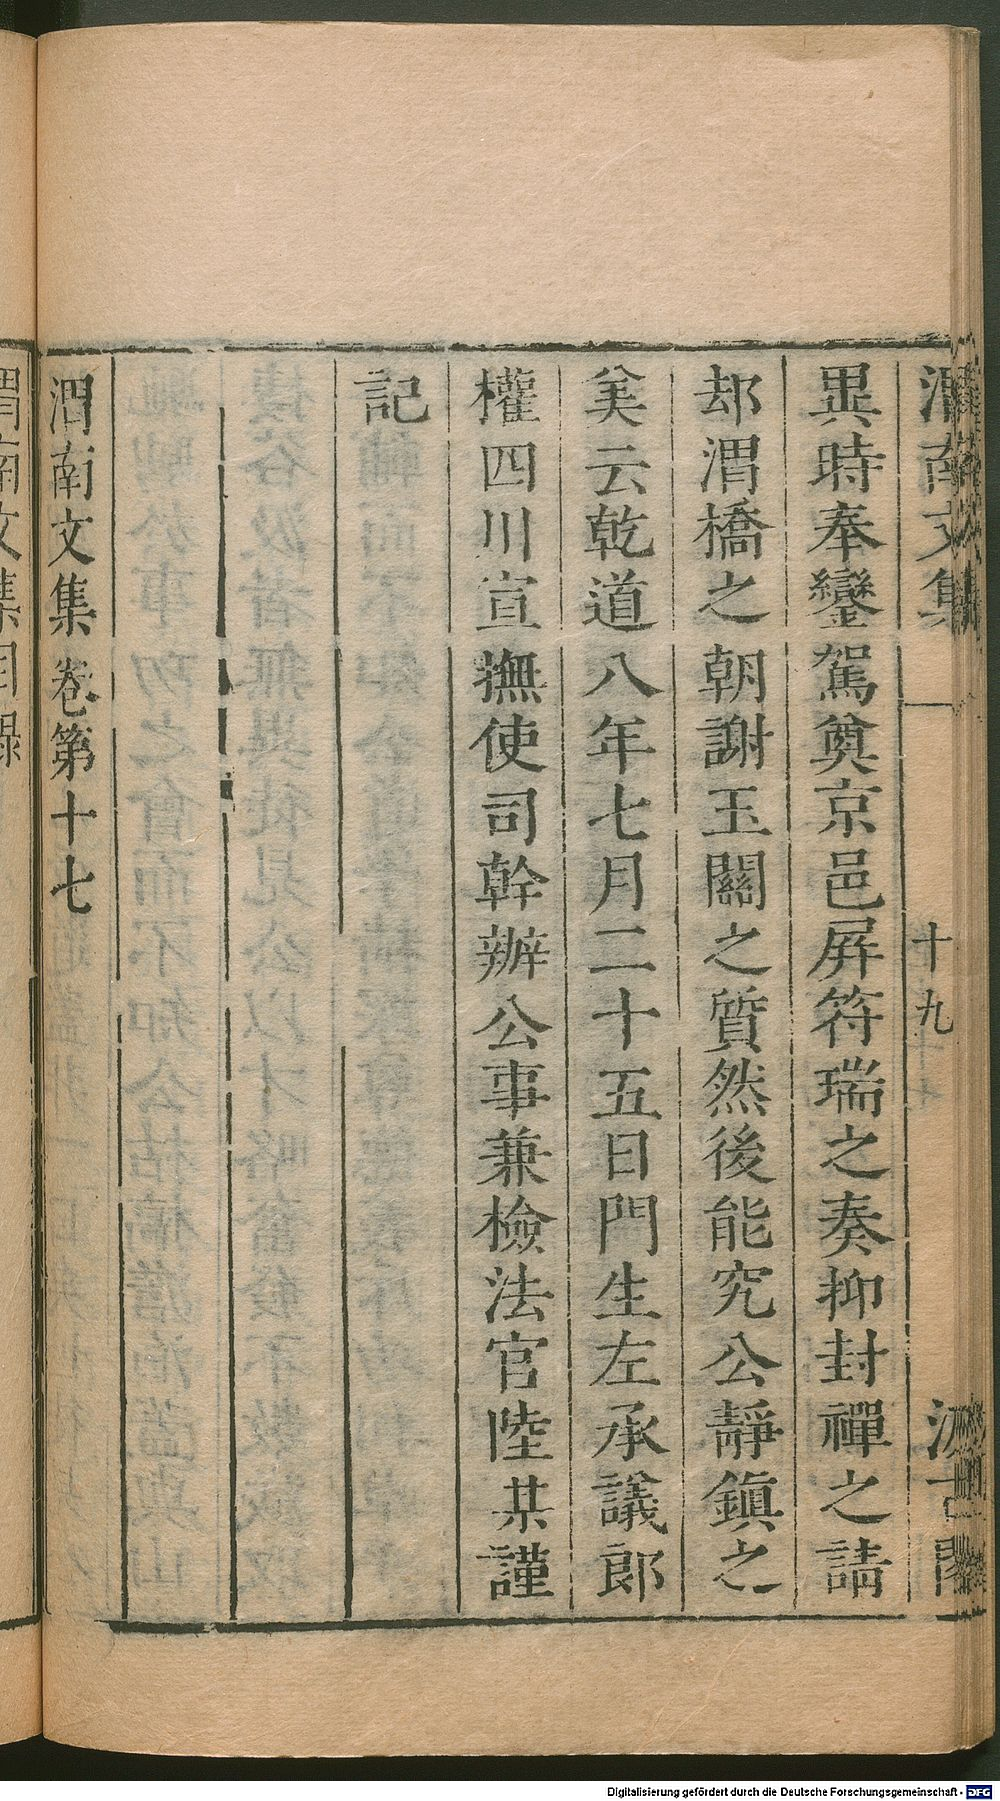 渭南文集
十九
汲古閣
異時奉鑾駕奠京邑屏符瑞之奏抑封禪之請
却渭橋之朝謝玉關之質然後能究公靜鎮之
美云乾道八年七月二十五日門生左承議郎
權四川宣撫使司幹辦公事兼檢法官陸某謹
記
渭南文集卷第十七
渭南文集目錄
Digitalisierung gefördert durch die Deutsche Forschungsgemeinschaft - DFG